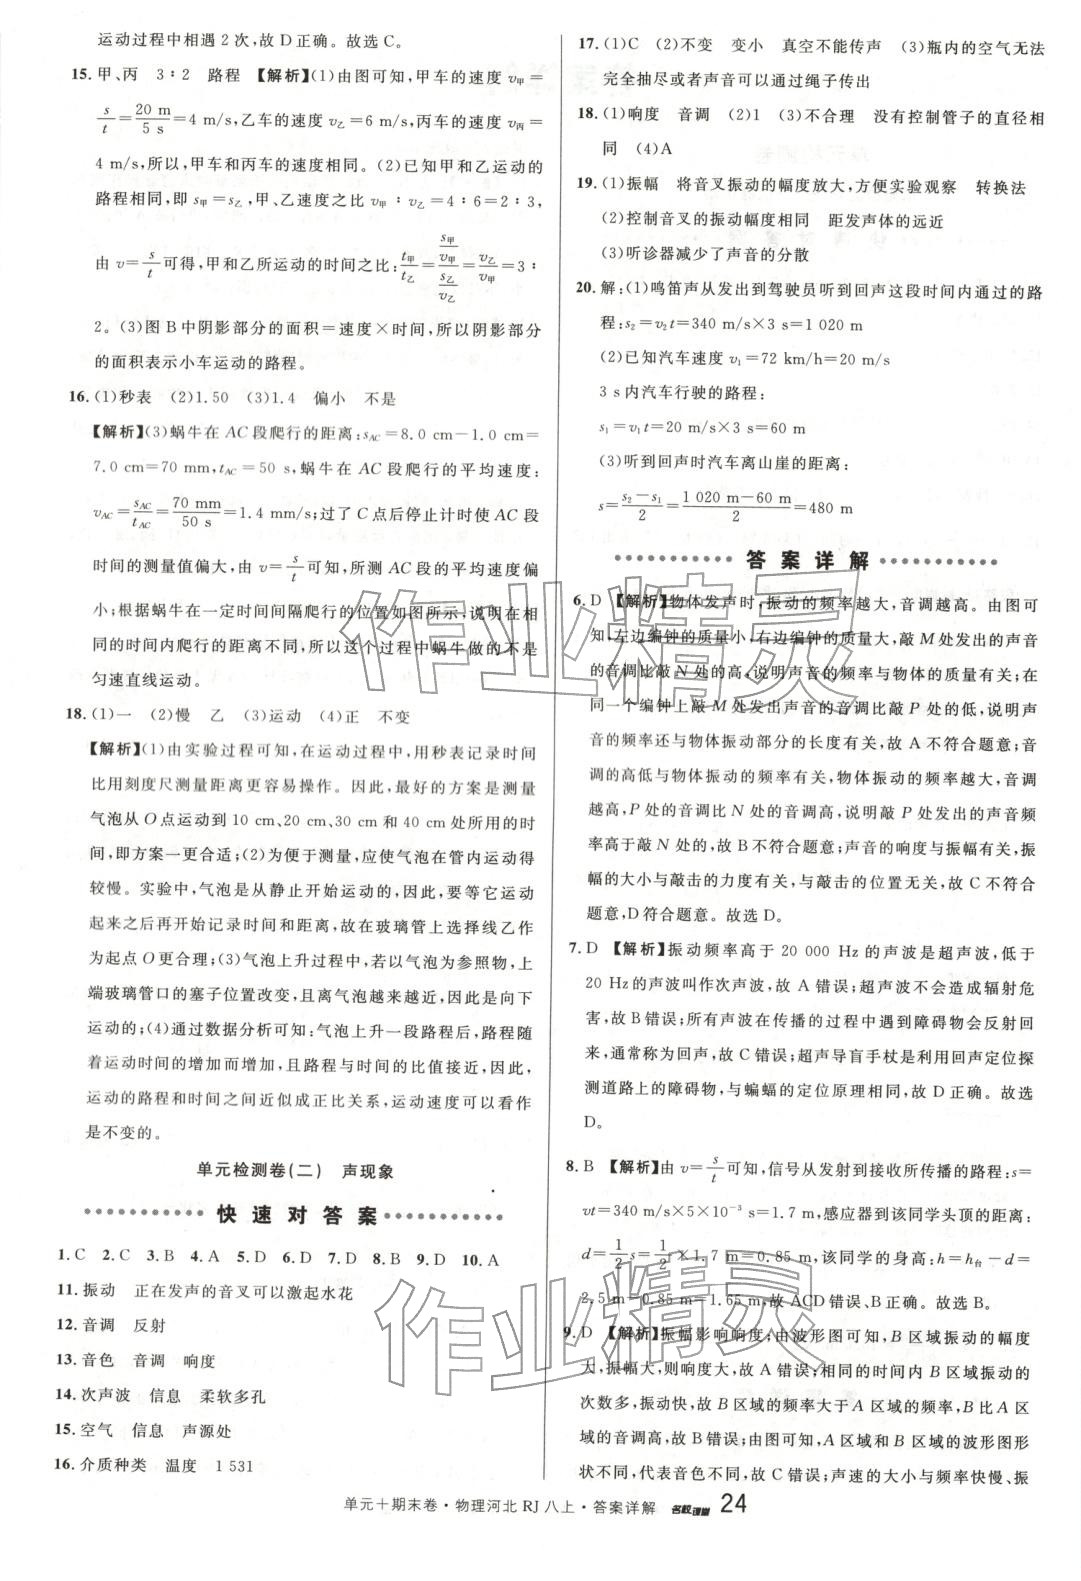 运动过程中相遇2次,故D正确。故选C。
15. 甲、丙 3∶2 路程 【解析】(1)由图可知,甲车的速度v甲=
s/t=20 m/5 s=4 m/s,乙车的速度v乙=6 m/s,丙车的速度v丙=
4 m/s,所以,甲车和丙车的速度相同。(2)已知甲和乙运动的
路程相同,即s甲=s乙,甲、乙速度之比v甲∶v乙=4∶6=2∶3,
由v=s/t可得,甲和乙所运动的时间之比:t甲/t乙=(s甲/v甲)/(s乙/v乙)=v乙/v甲=3∶
2。(3)图B中阴影部分的面积=速度×时间,所以阴影部分
的面积表示小车运动的路程。
16. (1)秒表 (2)1.50 (3)1.4 偏小 不是
【解析】(3)蜗牛在AC段爬行的距离:sAC=8.0 cm-1.0 cm=
7.0 cm=70 mm,tAC=50 s,蜗牛在AC段爬行的平均速度:
vAC=sAC/tAC=70 mm/50 s=1.4 mm/s;过了C点后停止计时使AC段
时间的测量值偏大,由v=s/t可知,所测AC段的平均速度偏
小;根据蜗牛在一定时间间隔爬行的位置如图所示,说明在相
同的时间内爬行的距离不同,所以这个过程中蜗牛做的不是
匀速直线运动。
18. (1)一 (2)慢 乙 (3)运动 (4)正 不变
【解析】(1)由实验过程可知,在运动过程中,用秒表记录时间
比用刻度尺测量距离更容易操作。因此,最好的方案是测量
气泡从O点运动到10 cm、20 cm、30 cm和40 cm处所用的时
间,即方案一更合适;(2)为便于测量,应使气泡在管内运动得
较慢。实验中,气泡是从静止开始运动的,因此,要等它运动
起来之后再开始记录时间和距离,故在玻璃管上选择线乙作
为起点O更合理;(3)气泡上升过程中,若以气泡为参照物,上
端玻璃管口的塞子位置改变,且离气泡越来越近,因此是向下
运动的;(4)通过数据分析可知:气泡上升一段路程后,路程随
着运动时间的增加而增加,且路程与时间的比值接近,因此,
运动的路程和时间之间近似成正比关系,运动速度可以看作
是不变的。
单元检测卷(二) 声现象
快速对答案
1. C 2. C 3. B 4. A 5. D 6. D 7. D 8. B 9. D 10. A
11. 振动 正在发声的音叉可以激起水花
12. 音调 反射
13. 音色 音调 响度
14. 次声波 信息 柔软多孔
15. 空气 信息 声源处
16. 介质种类 温度 1 531
17. (1)C (2)不变 变小 真空不能传声 (3)瓶内的空气无法
完全抽尽或者声音可以通过绳子传出
18. (1)响度 音调 (2)1 (3)不合理 没有控制管子的直径相
同 (4)A
19. (1)振幅 将音叉振动的幅度放大,方便实验观察 转换法
(2)控制音叉的振动幅度相同 距发声体的远近
(3)听诊器减少了声音的分散
20. 解:(1)鸣笛声从发出到驾驶员听到回声这段时间内通过的路
程:s2=v2t=340 m/s×3 s=1 020 m
(2)已知汽车速度v1=72 km/h=20 m/s
3 s内汽车行驶的路程:
s1=v1t=20 m/s×3 s=60 m
(3)听到回声时汽车离山崖的距离:
s=(s2-s1)/2=(1 020 m-60 m)/2=480 m
答案详解
6. D 【解析】物体发声时,振动的频率越大,音调越高。由图可
知,左边编钟的质量小,右边编钟的质量大,敲M处发出的声音
的音调比敲N处的高,说明声音的频率与物体的质量有关;在
同一个编钟上敲M处发出声音的音调比敲P处的低,说明声
音的频率还与物体振动部分的长度有关,故A不符合题意;音
调的高低与物体振动的频率有关,物体振动的频率越大,音调
越高,P处的音调比N处的音调高,说明敲P处发出的声音频
率高于敲N处的,故B不符合题意;声音的响度与振幅有关,振
幅的大小与敲击的力度有关,与敲击的位置无关,故C不符合
题意,D符合题意。故选D。
7. D 【解析】振动频率高于20 000 Hz的声波是超声波,低于
20 Hz的声波叫作次声波,故A错误;超声波不会造成辐射危
害,故B错误;所有声波在传播的过程中遇到障碍物会反射回
来,通常称为回声,故C错误;超声导盲手杖是利用回声定位探
测道路上的障碍物,与蝙蝠的定位原理相同,故D正确。故选
D。
8. B 【解析】由v=s/t可知,信号从发射到接收所传播的路程:s=
vt=340 m/s×5×10⁻³ s=1.7 m,感应器到该同学头顶的距离:
d=1/2 s=1/2×1.7 m=0.85 m,该同学的身高:h=h台-d=
2.5 m-0.85 m=1.65 m,故ACD错误、B正确。故选B。
9. D 【解析】振幅影响响度;由波形图可知,B区域振动的幅度
大,振幅大,则响度大,故A错误;相同的时间内B区域振动的
次数多,振动快,故B区域的频率大于A区域的频率,B比A区
域的音调高,故B错误;由图可知,A区域和B区域的波形图形
状不同,代表音色不同,故C错误;声速的大小与频率快慢、振
单元+期末卷·物理河北RJ八上·答案详解 名校课堂 24
作业精灵
作业精灵